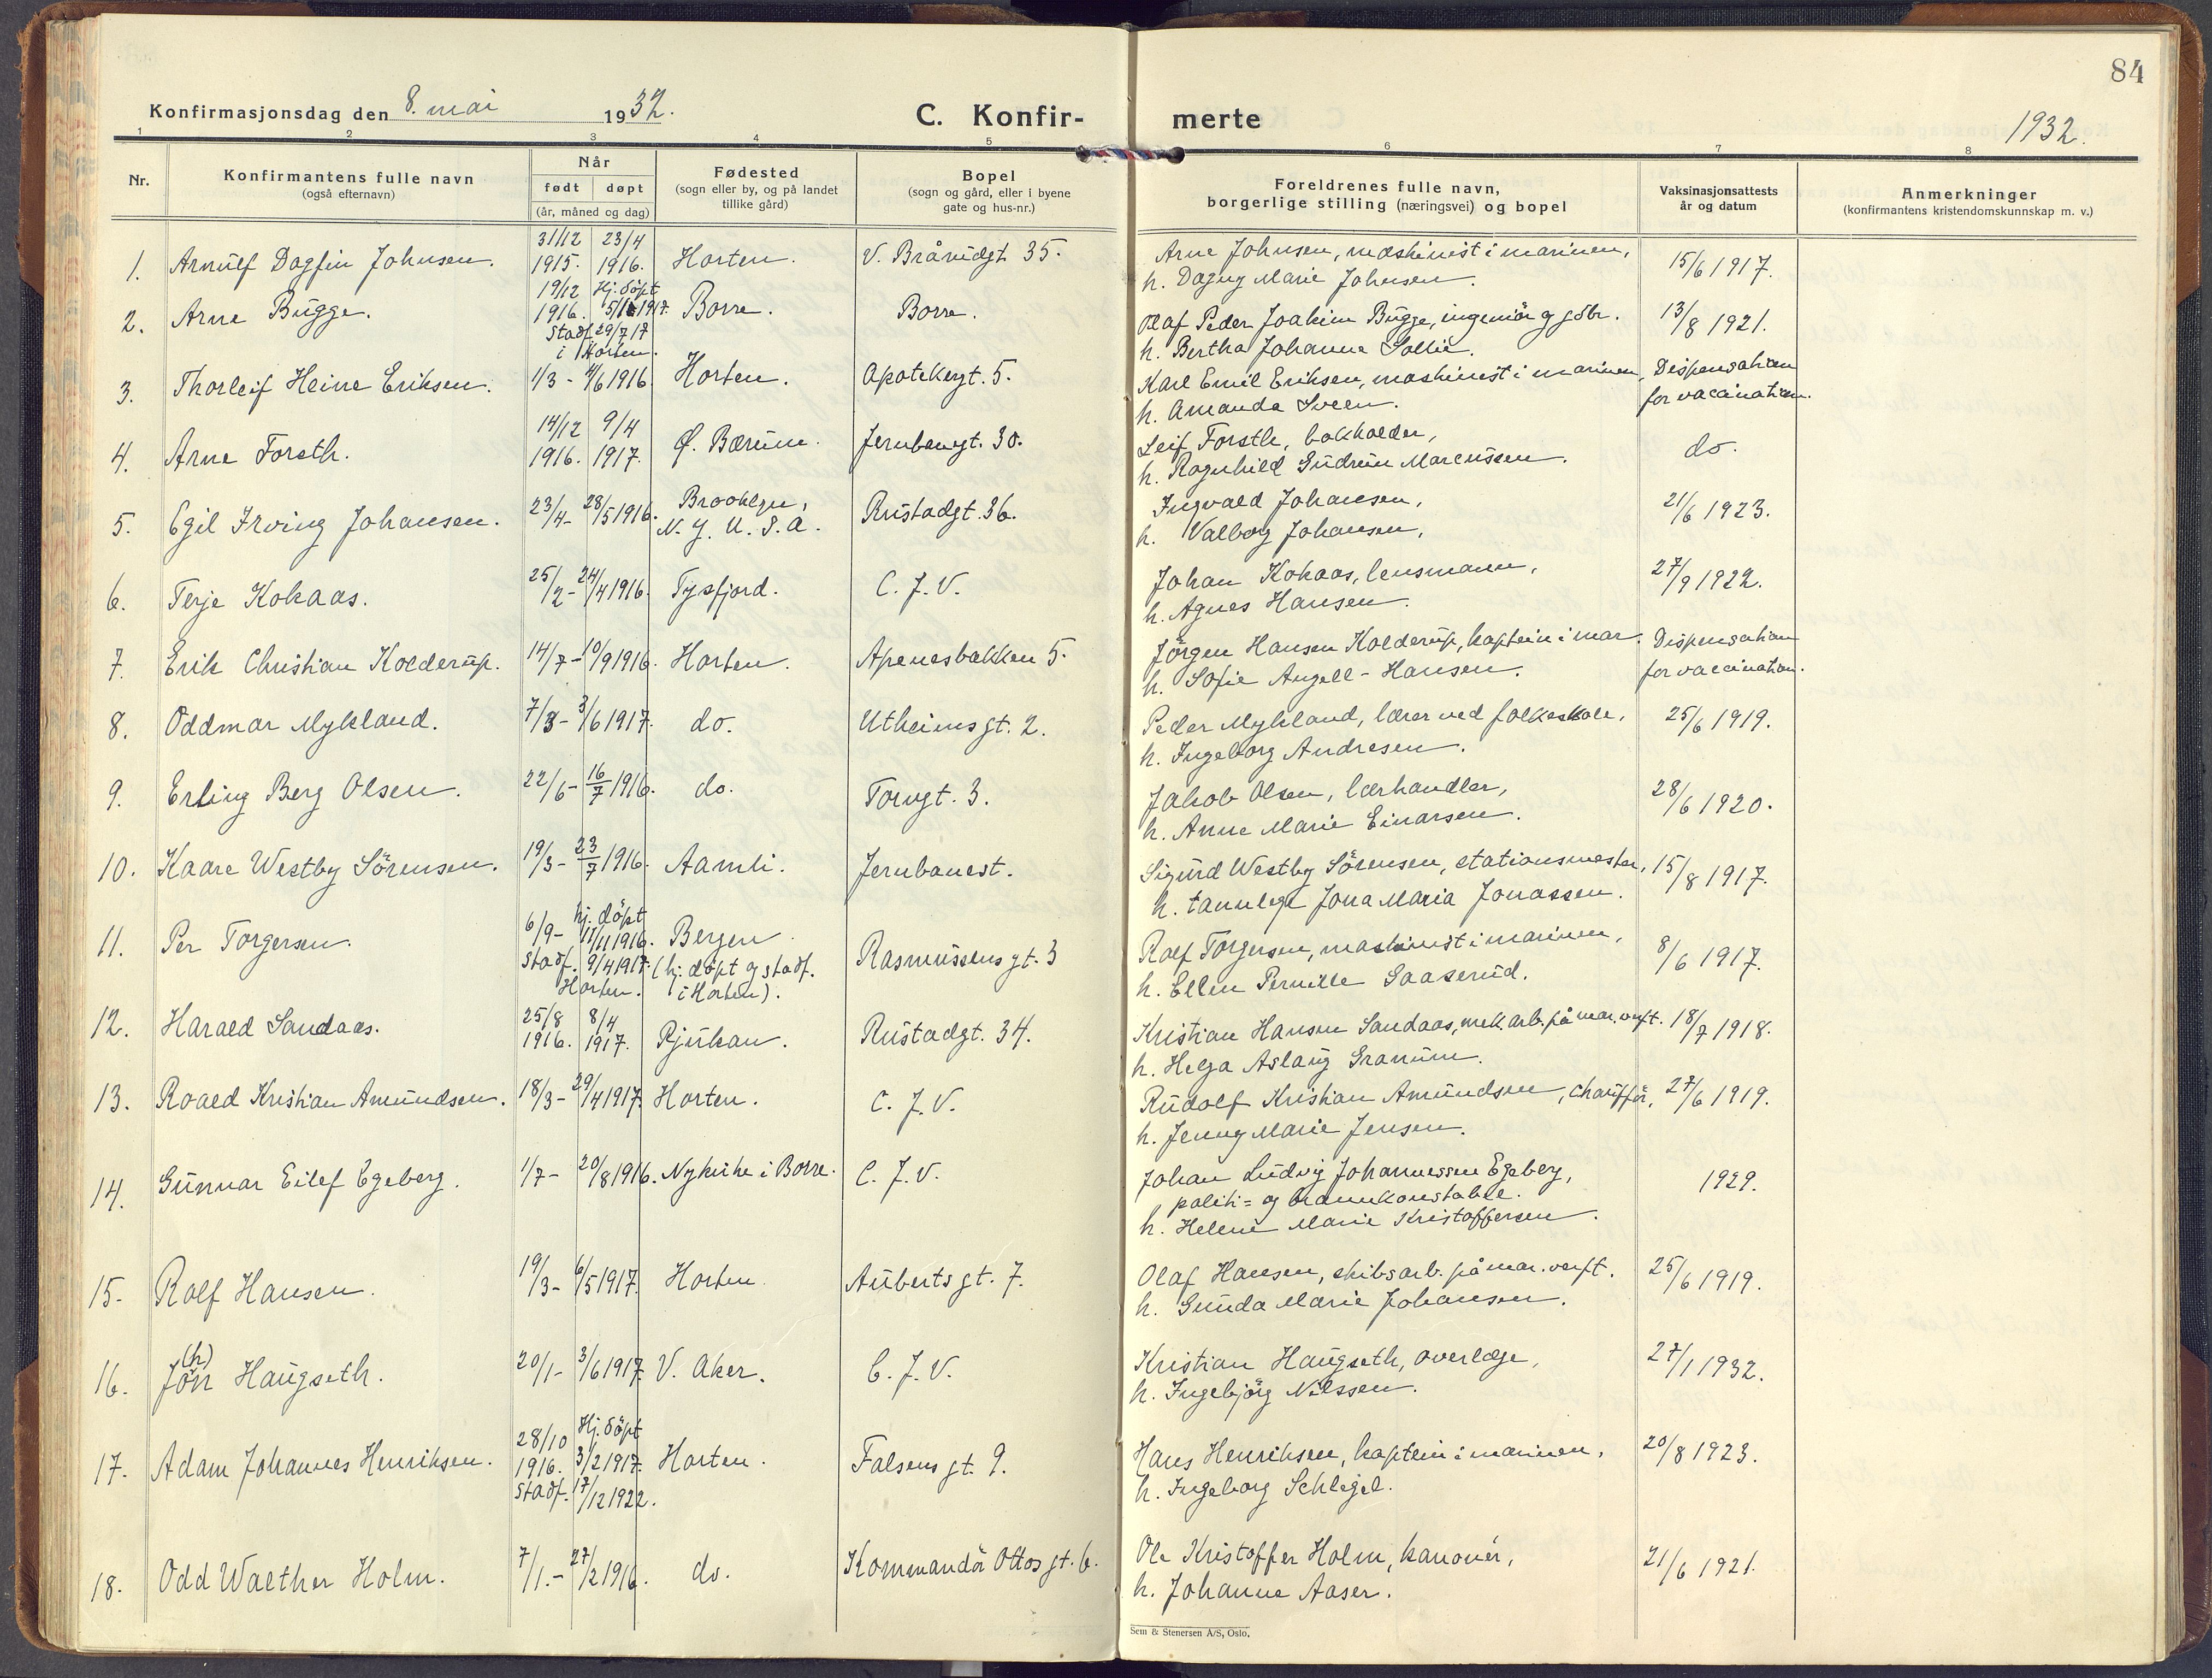 84
Konfirmasjonsdag den 8. mai 1932.
C. Konfir- merte
1932.
1 2 3 4 5 6 7 8
Nr.
Konfirmantens fulle navn
(også efternavn)
Når
født døpt
(år, måned og dag)
Fødested
(sogn eller by, og på landet
tillike gård)
Bopel
(sogn og gård, eller i byene
gate og hus-nr.)
Foreldrenes fulle navn,
borgerlige stilling (næringsvei) og bopel
Vaksinasjonsattests
år og datum
Anmerkninger
(konfirmantens kristendomskunnskap m. v.)
1. Arnulf Dagfin Johnsen. 31/12 1915. 23/4 1916. Horten. V. Brårudgt 35.
Arne Johnsen, maskinist i marinen, 15/6 1917.
h. Dagny Marie Johnsen.
2. Arne Bugge. 19/12 1916. Hj. döpt 1917. Borre. Borre.
Stadf. 29/7 17
i Horten.
Olaf Peder Joakim Bugge, ingeniör g 13/8 1921.
h. Bertha Johanna Sollie.
3. Thorleif Heine Eriksen. 1/3 - 4/6 1916 Horten. Apotekergt. 5.
Karl Emil Eriksen, maskinist i marinen, Dispensation
h. Amanda Sveen. for vaccination.
4. Arne Forsth. 14/12 1916. 9/4 1917. Ø. Bærum. Jernbanegt. 30.
Leif Forsth, bokholder, do.
h. Ragnhild Gudrun Marcussen.
5. Egil Irving Johansen. 23/4 - 28/5 1916. Brooklyn, Rustadgt. 36.
N. Y. U. S. A.
Ingvald Johansen, 21/6 1923.
h. Valborg Johansen,
6. Terje Kokaas. 25/2 - 24/4 1916. Tysfjord. C. J. V.
Johan Kokaas, lensmann, 27/9 1922.
h. Agnes Hansen.
7. Erik Christian Kolderup. 14/7 - 10/9 1916. Horten. Apenesbakken 5.
Jörgen Hansen Kolderup, kaptein i mar. Dispensation
h. Sofie Angell-Hansen. for vaccination.
8. Oddmar Mykland. 7/3 - 3/6 1917. do. Utheimsgt. 2.
Peder Mykland, lærer ved folkeskole, 25/6 1919.
h. Ingeborg Andresen.
9. Erling Berg Olsen. 22/6 - 16/7 1916. do. Torvgt. 3.
Jakob Olsen, lærhandler, 28/6 1920.
h. Anne Marie Einarsen.
10. Kaare Westby Sörensen. 19/3 - 23/7 1916. Aamli. Jernbanest.
Sigurd Westby Sörensen, stationsmester, 15/8 1917.
h. tannlege Jona Maria Jonassen.
11. Per Torgersen. 6/9 - hj. döpt 11/11 1916. Bergen Rasmussens gt. 3
stadf. 9/4 1917. (hj. döpt og stadf.
Horten. i Horten).
Rolf Torgersen, maskinist i marinen, 8/6 1917.
h. Ellen Pernille Saaserud.
12. Harald Sandaas. 25/8 1916. 8/4 1917. Rjukan. Rustadgt. 34.
Kristian Hansen Sandaas, mek. arb. på mar. verft. 18/7 1918.
h. Helga Aslaug Granum.
13. Roald Kristian Amundsen. 18/3 - 29/4 1917. Horten. C. J. V.
Rudolf Kristian Amundsen, chaufför, 27/6 1919.
h. Jenny Marie Jensen.
14. Gunnar Eilef Egeberg. 1/7 - 20/8 1916. Nykirke i Borre. C. J. V.
Johan Ludvig Johannessen Egeberg, 1929.
politi= og brannkonstabel.
h. Helene Marie Kristoffersen.
15. Rolf Hansen. 19/3 - 6/5 1917. Horten. Auberts gt. 7.
Olaf Hansen, skibsarb. på mar. verft. 25/6 1919.
h. Gunda Marie Johansen.
(h)
16. Jon Haugseth. 20/1 - 3/6 1917. V. Aker. C. J. V.
Kristian Haugseth, overlæge, 27/1 1932.
h. Ingebjörg Nilssen.
17. Adam Johannes Henriksen. 28/10 1916. Hj. döpt 3/2 1917. Horten. Falsens gt. 9.
stadf. 17/12 1922.
Hans Henriksen, kaptein i marinen, 20/8 1923.
h. Ingeborg Schlegel.
18. Odd Walther Holm. 7/1. - 27/2 1916. do. Kommandör Ottos gt. 6.
Ole Kristoffer Holm, kanonér, 21/6 1921.
h. Johanne Aaser.
Sem & Stenersen A/S, Oslo.